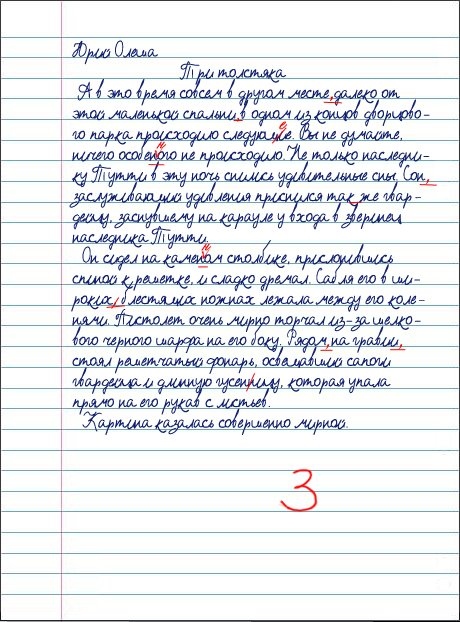 Юрий Олеша
Три толстяка
А в это время совсем в другом месте, далеко от
этой маленькой спальни, в одном из концов дворцово-
го парка происходило следующее. Вы не думайте,
ничего особенного не происходило. Не только наследни-
ку Тутти в эту ночь снились удивительные сны. Сон,
заслуживающий удивления приснился так же гвар-
дейцу, заснувшему на карауле у входа в зверинец
наследника Тутти.
Он сидел на каменном столбике, прислонившись
спиной к решетке, и сладко дремал. Сабля его в ши-
роких, блестящих ножнах лежала между его коле-
нями. Пистолет очень мирно торчал из-за шелко-
вого черного шарфа на его боку. Рядом, на гравии,
стоял решетчатый фонарь, освещавший сапоги
гвардейца и длинную гусенницу, которая упала
прямо на его рукав с листьев.
Картина казалась совершенно мирной.
3